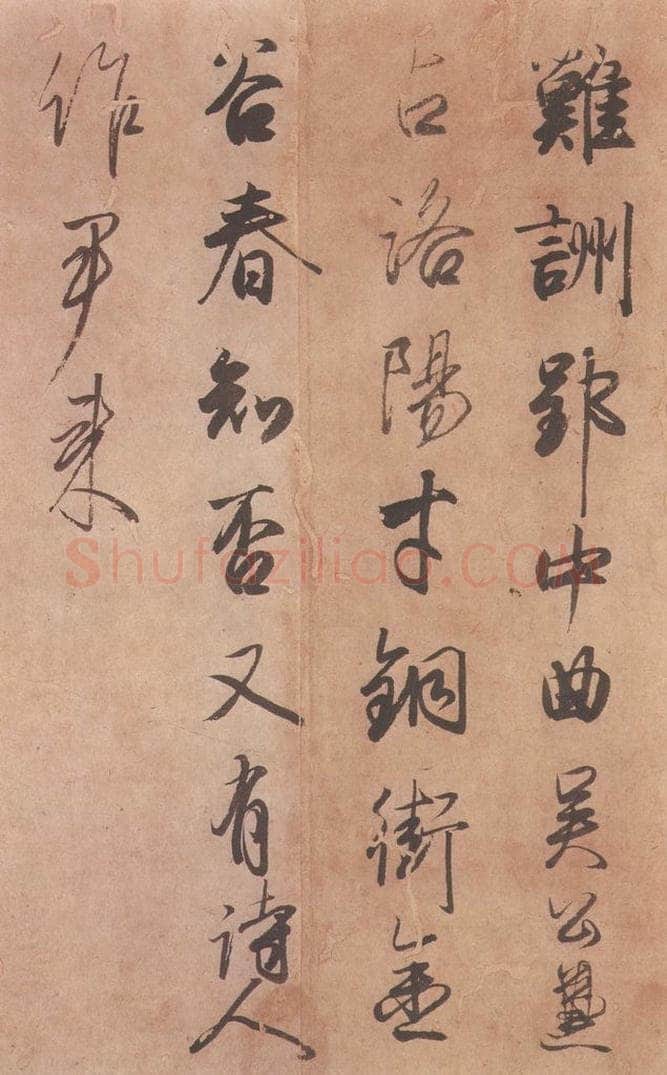 難詶郢中曲吴公兼
占洛陽才銅街金
谷春知否又有詩人
作尹来
Shufaziliao.COM